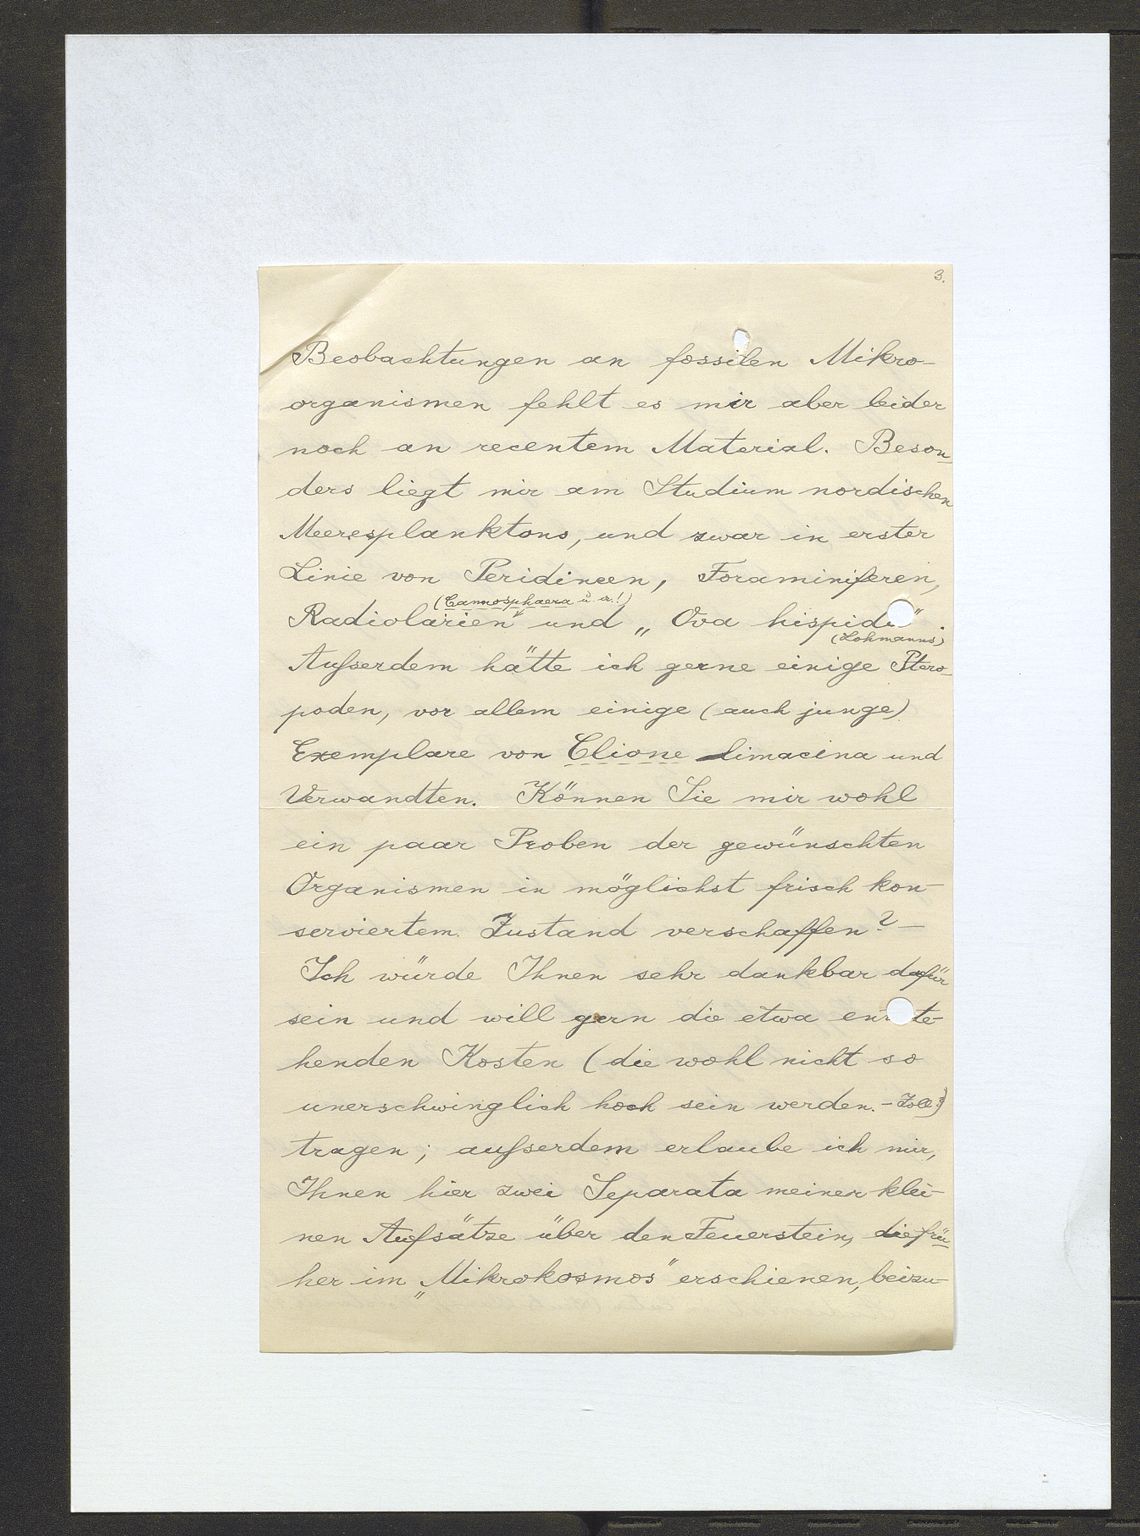 3.
Beobachtungen an fossilen Mikro-
organismen fehlt es mir aber leider
noch an recentem Material. Beson-
ders liegt mir am Studium nordischen
Meeresplanktons, und zwar in erster
Linie von Peridineen, Foraminiferen,
(Cannosphaera u. a.!)
Radiolarien und „Ova hispida".
(Lohmanns)
Aufserdem hätte ich gerne einige Ptero-
poden, vor allem einige (auch junge)
Exemplare von Clione limacina und
Verwandten. Können Sie mir wohl
ein paar Proben der gewünschten
Organismen in möglichst frisch kon-
serviertem Zustand verschaffen? —
Ich würde Ihnen sehr dankbar dafür
sein und will gern die etwa entste-
henden Kosten (die wohl nicht so
unerschwinglich hoch sein werden. - Zoll?)
tragen; aufserdem erlaube ich mir,
Ihnen hier zwei Separata meiner klei-
nen Aufsätze über den Feuerstein, die frü-
her im „Mikrokosmos" erschienen, beizu-